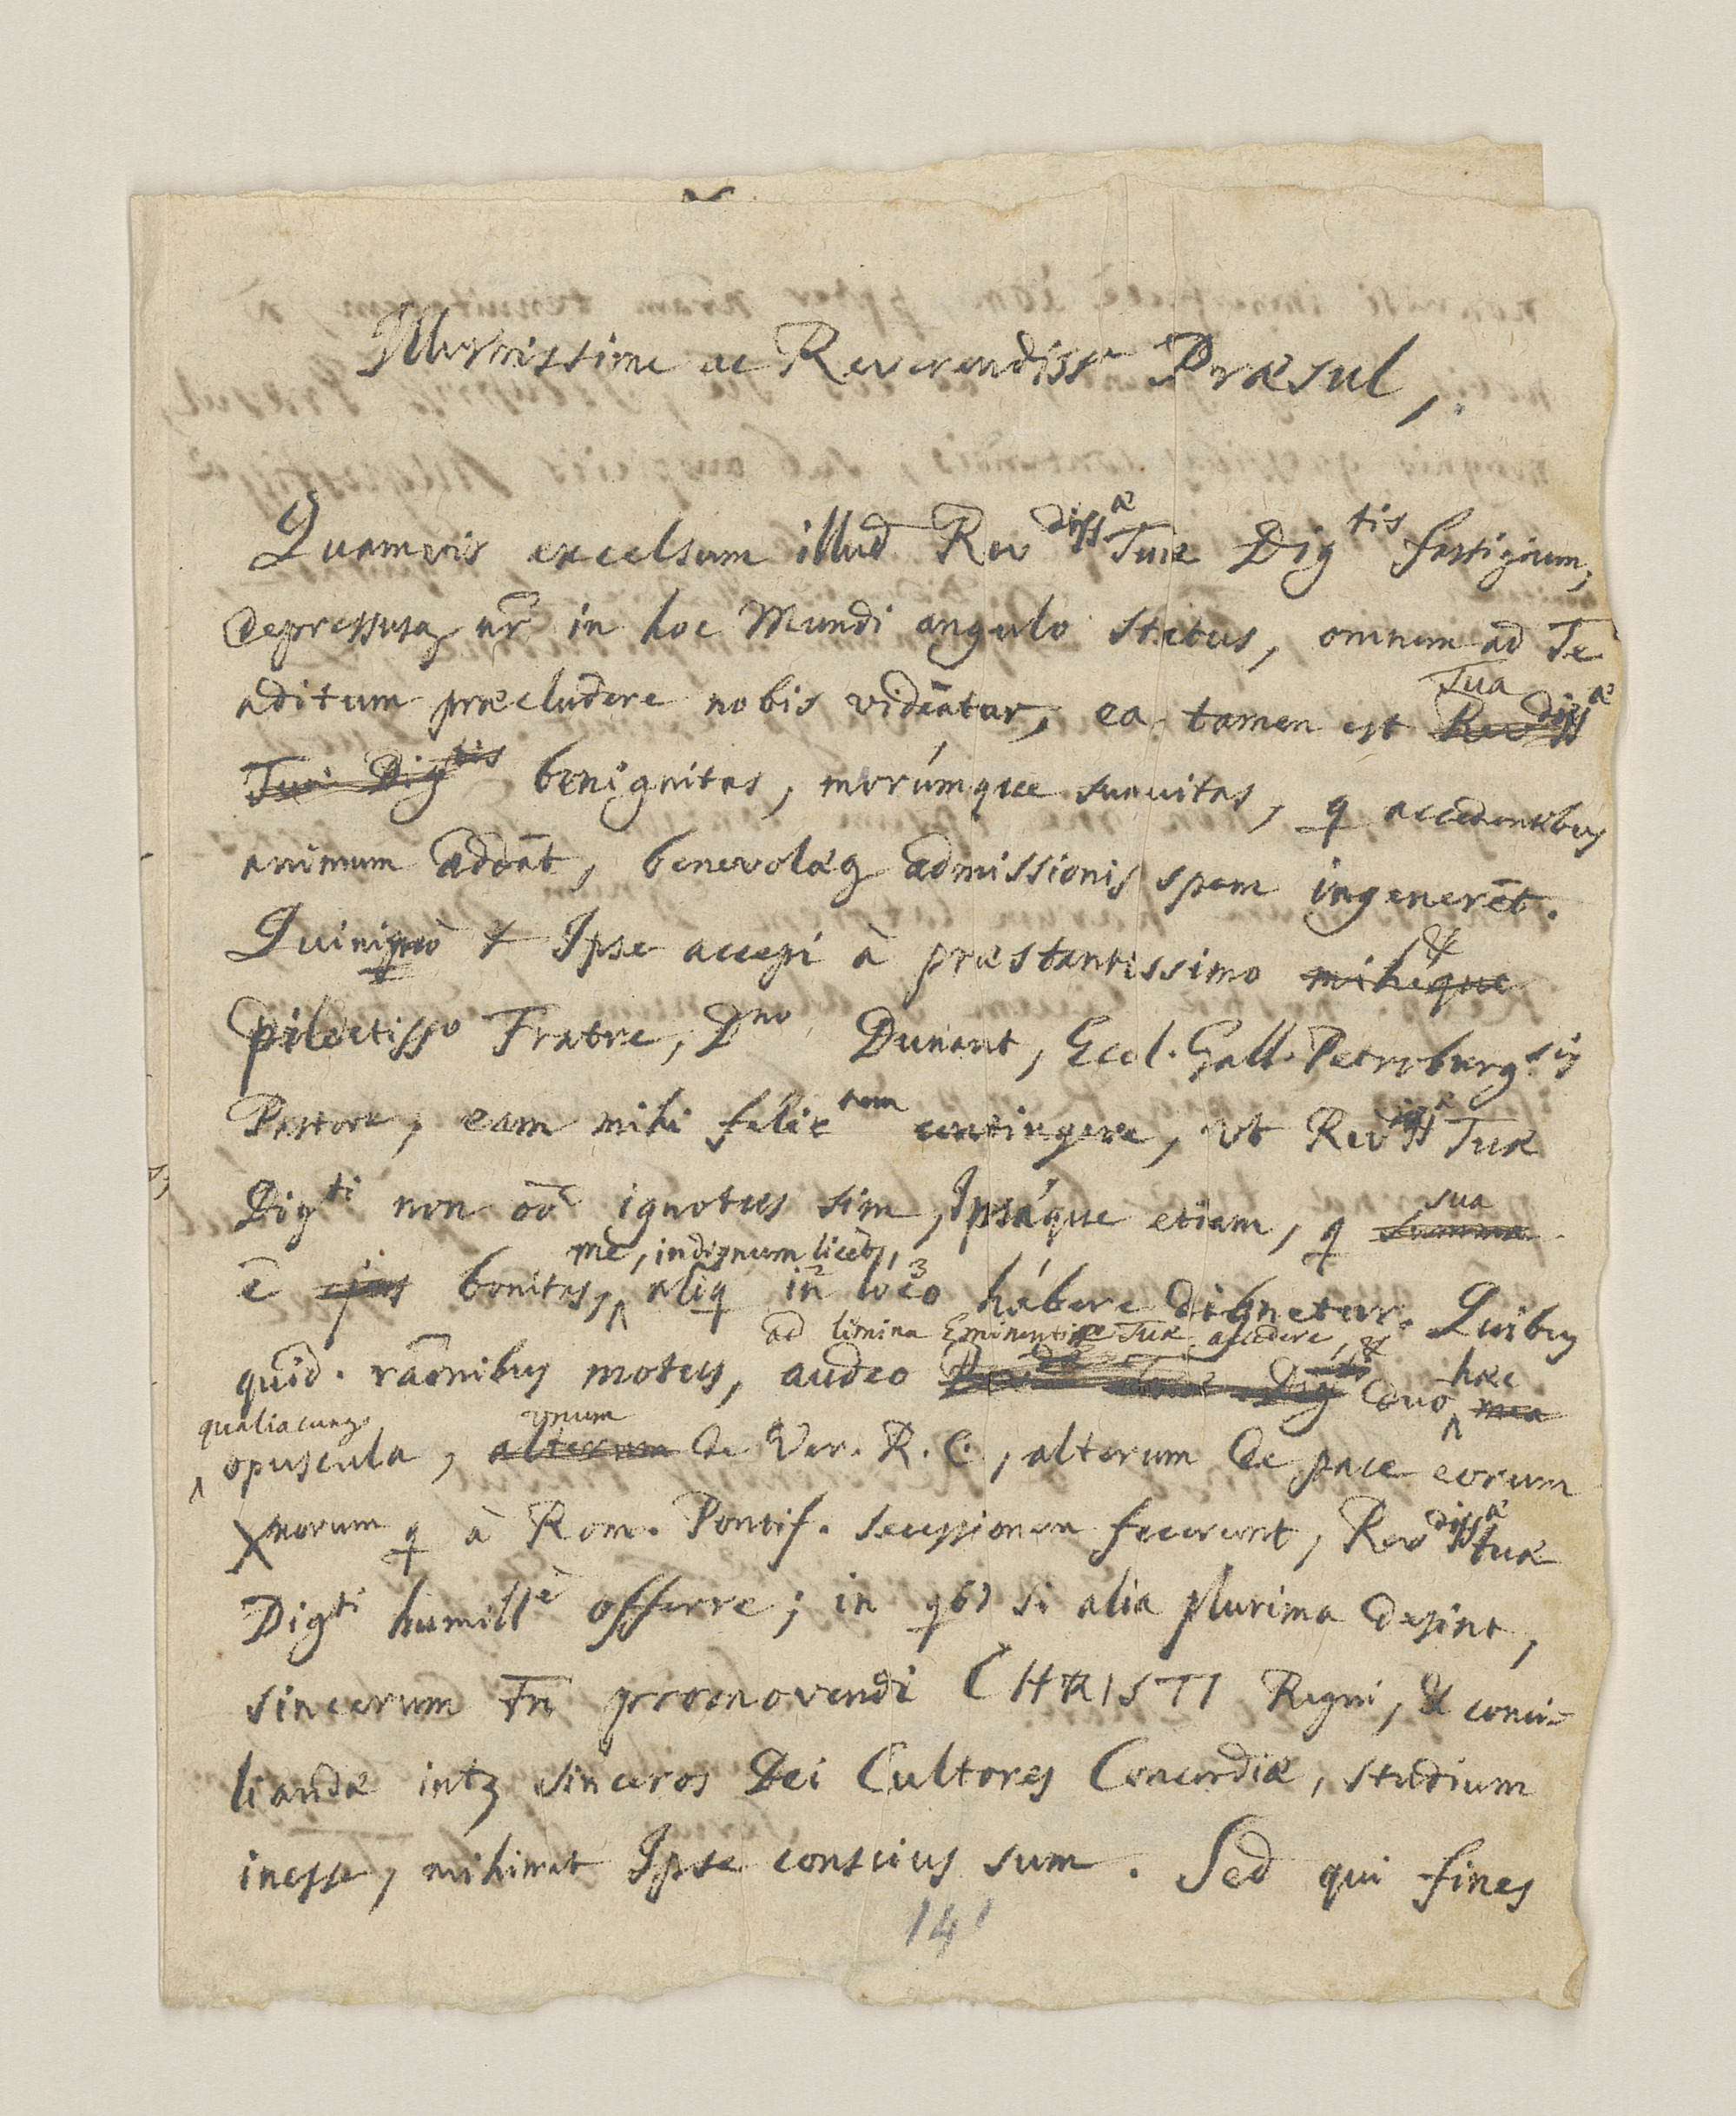 Illustrissime ac Reverendiss^e Præsul,
Quamvis excelsum illud Rev^diss^æ Tuæ Dig^tis fastigium,
depressusq nr̄ in hoc Mundi angulo status, omnem ad Te
aditum præcludere nobis videātur, ea tamen est Tua ~~Rev^diss^æ~~
~~Tuæ Dig^tis~~ benignitas, morúmque suavitas, q accedentibus
animum addāt, benevolæq admissionis spem ingenerēt.
Quinimò & Ipse accepi à præstantissimo & ~~mihíque~~
dilectiss^o Fratre, D^no Dunant, Eccl. Gall. Petroburg^sis
Pastore, eam mihi felic^tem contingere, vt Rev^diss^æ Tuæ
Dig^ti non oō ignotus sim, Ipsáque etiam, q sua ~~summa~~
ē ~~ejus~~ bonitas, me, indignum licèt, aliq in² loco³ hábere dignetur. Quibus
quid. raōnibus motus, audeo ad limina Eminentiæ Tuæ accedere, & ~~Rev^diss^æ Tuæ Dig^ti~~ duo hæc ~~mea~~
qualiacunq opuscula, vnum ~~alterum~~ de Ver. R. C., alterum de pace eorum
X^norum q à Rom. Pontif. secessionem fecerunt, Rev^diss^æ tuæ
Dig^ti humill^è offerre; in qb⁹ si alia plurima desint,
sincerum tn̄ promovendi CHRISTI Regni, & conci-
liandæ intz sinceros Dei Cultores Concordiæ, studium
inesse, mihimet Ipse conscius sum. Sed qui fines
141